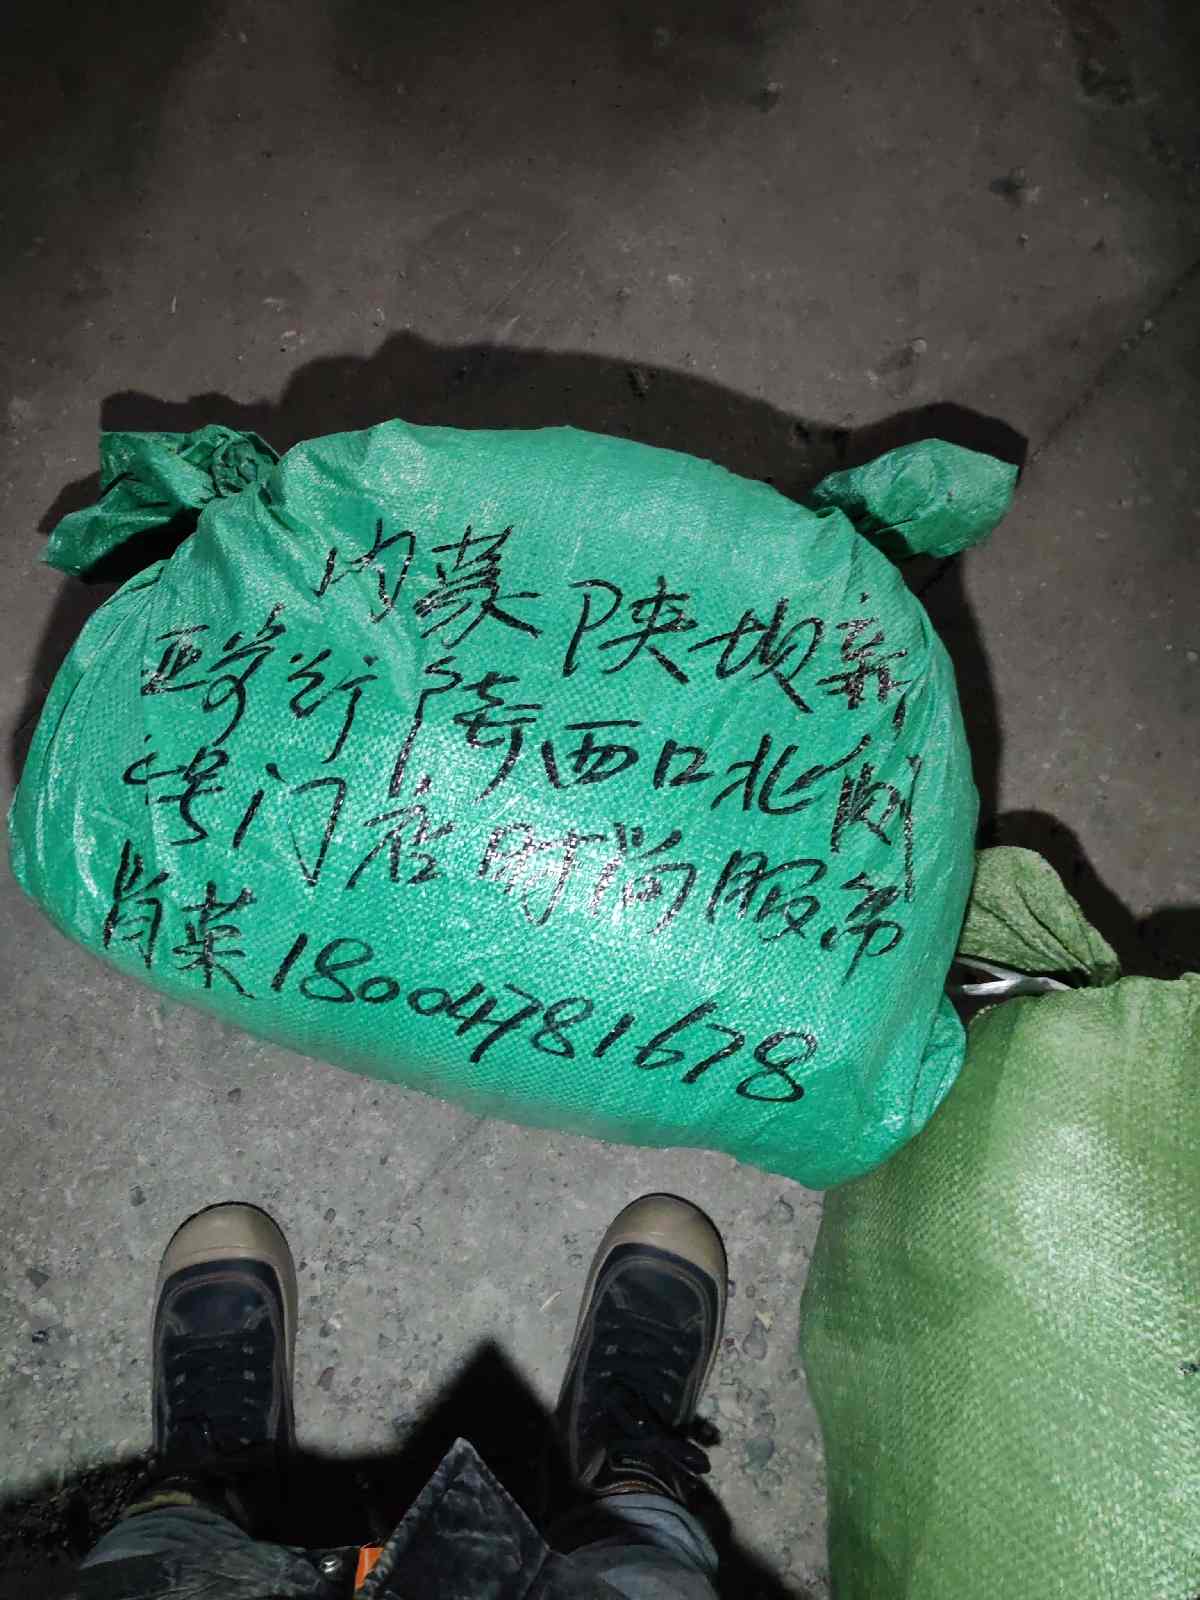 内蒙 陕坝新
亚 街 陕西口北侧
号门店时尚服饰
肖菜18004781678